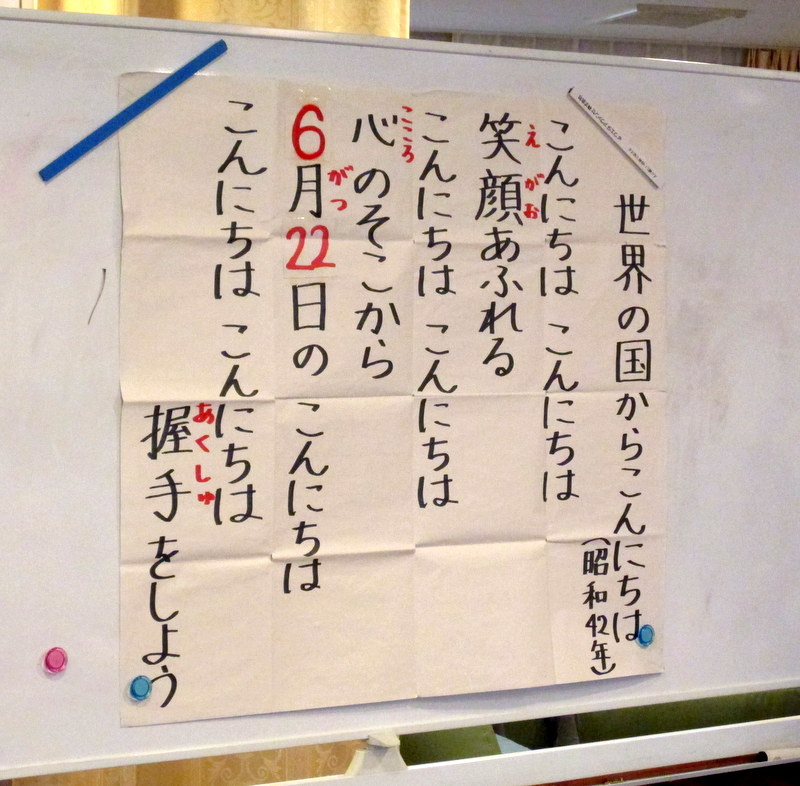 世界の国からこんにちは
(昭和42年)
こんにちは こんにちは
えがお
笑顔あふれる
こんにちは こんにちは
こころ
心のそこから
がつ
6月22日の こんにちは
こんにちは こんにちは
あくしゅ
握手をしよう